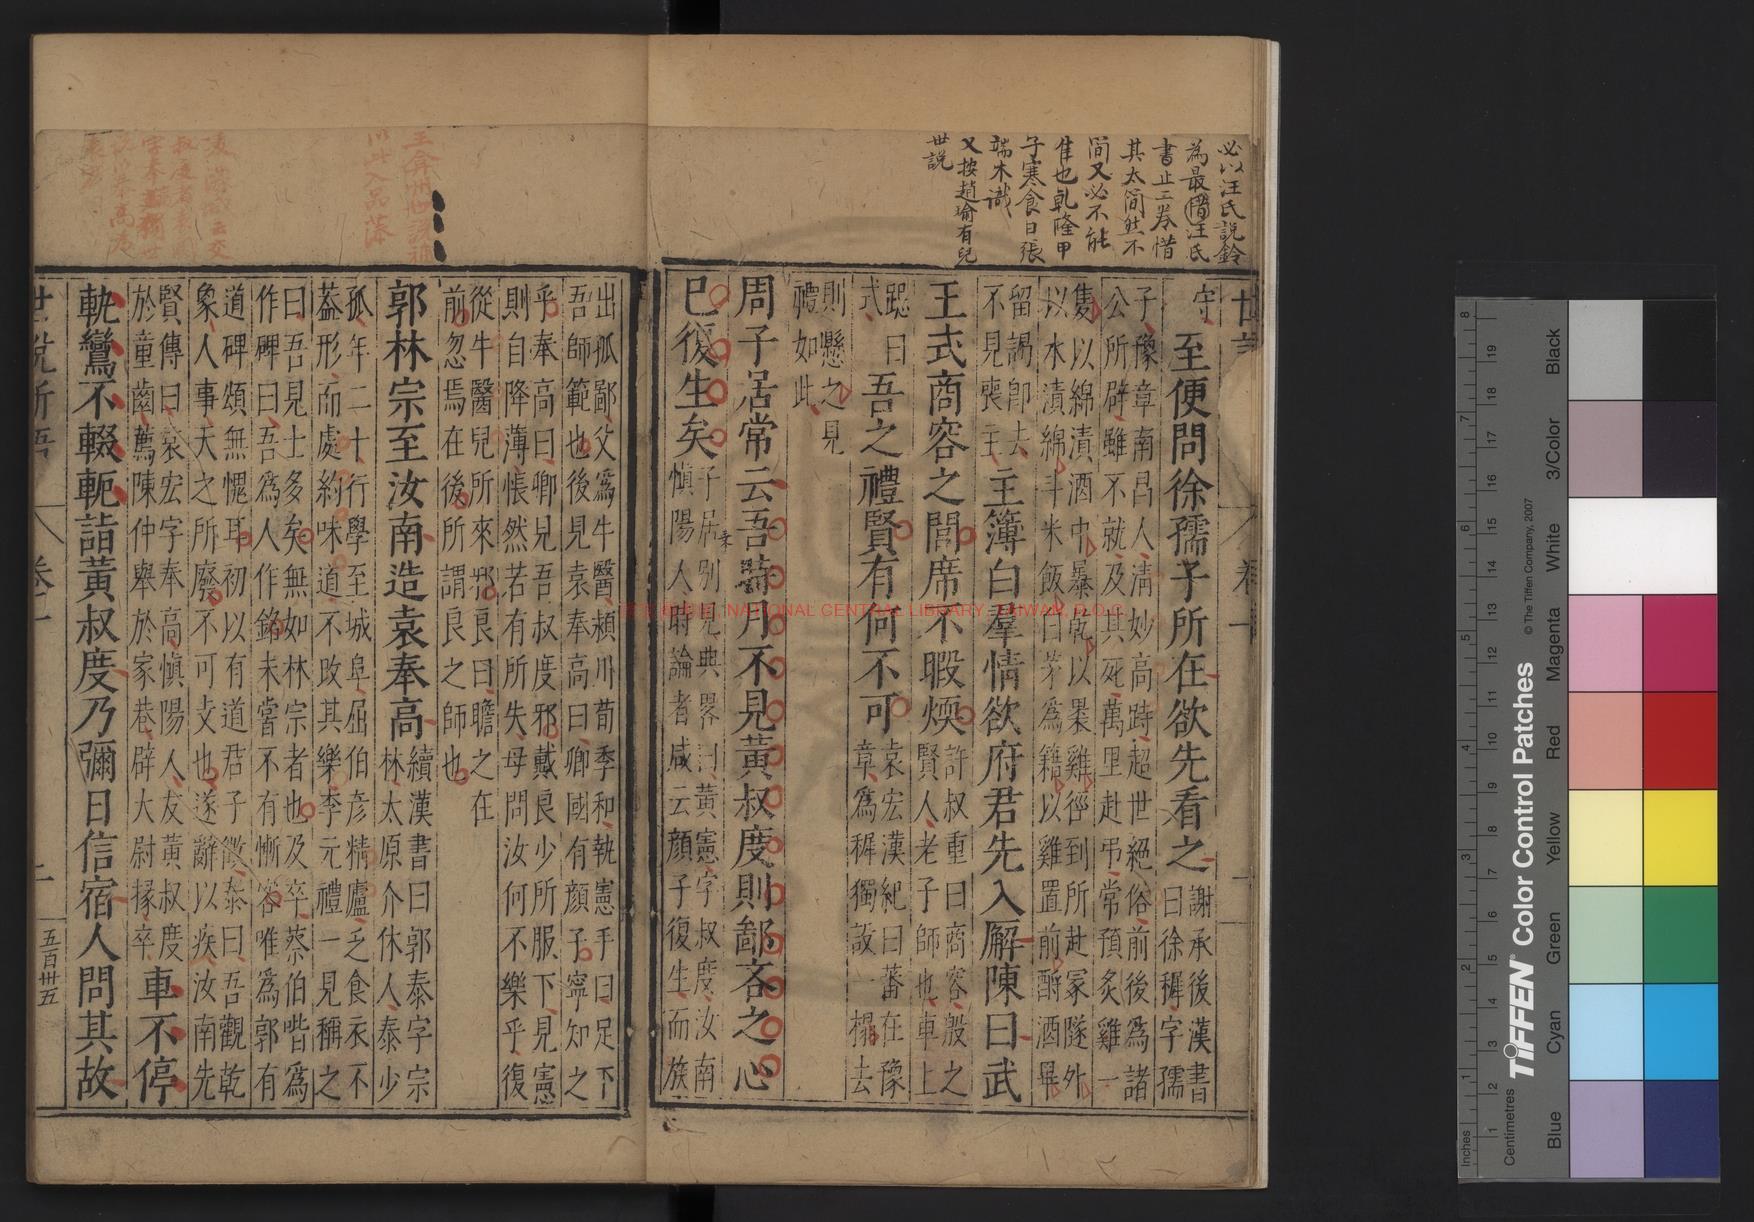 必以汪氏說鈴
為最惜汪氏
書止二卷惜
其太簡然不
簡又必不能
隹也乾隆甲
子寒食日張
端木識
又按趙瑜有兒
世說
守
至便問徐孺子所在欲先看之
謝承後漢書
曰徐穉字孺
子豫章南昌人清妙高跱超世絕俗前後為諸
公所辟雖不就及其死萬里赴弔常預炙雞一
隻以綿漬酒中暴乾以裹雞徑到所赴冢隧外
以水漬綿斗米飯白茅為籍以雞置前酹酒畢
留謁即去
不見喪主
主簿白羣情欲府君先入廨陳曰武
王式商容之閭席不暇煗
許叔重曰商容殷之
賢人老子師也車上
跽曰
式
吾之禮賢有何不可
袁宏漢紀曰蕃在豫
章為穉獨設一榻去
則懸之見
禮如此
周子居常云吾時月不見黃叔度則鄙吝之心
已復生矣
子居別見典畧曰黃憲字叔度汝南
慎陽人時論者咸云顏子復生而族
出孤鄙父為牛醫潁川荀季和執憲手曰足下
吾師範也後見袁奉高曰卿國有顏子寧知之
乎奉高曰卿見吾叔度邪戴良少所服下見憲
則自降薄悵然若有所失母問汝何不樂乎復
從牛醫兒所來邪良曰瞻之在
前忽焉在後所謂良之師也
郭林宗至汝南造袁奉高
續漢書曰郭泰字宗
林太原介休人泰少
孤年二十行學至城阜屈伯彥精廬乏食衣不
蓋形而處約味道不改其樂李元禮一見稱之
曰吾見士多矣無如林宗者也及卒蔡伯喈為
作碑曰吾為人作銘未嘗不有慚容唯為郭有
道碑頌無愧耳初以有道君子徵泰曰吾觀乾
象人事天之所廢不可支也遂辭以疾汝南先
賢傳曰袁宏字奉高慎陽人友黃叔度
於童齒薦陳仲舉於家巷辟大尉掾卒
車不停
軌鸞不輟軛詣黃叔度乃彌日信宿人問其故
世說新語
卷一
五百卅五
NATIONAL CENTRAL LIBRARY, TAIWAN, R.O.C.
TIFFEN® Color Control Patches
© The Tiffen Company, 2007
Inches
Centimetres
Blue
Cyan
Green
Yellow
Red
Magenta
White
3/Color
Black